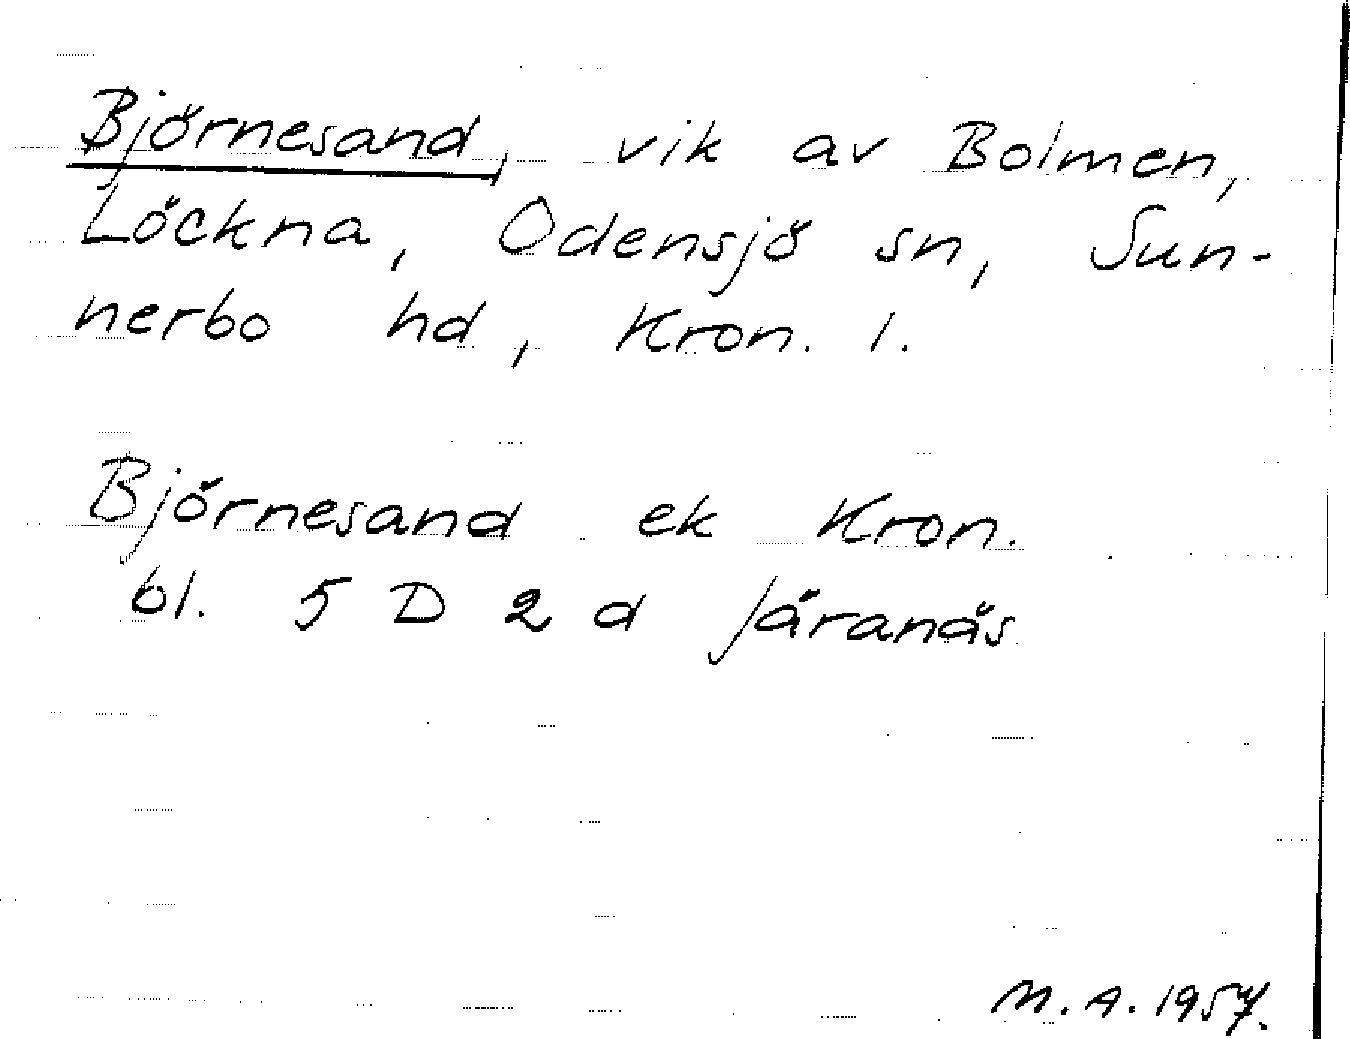 Björnesand, vik av Bolmen,
Löckna, Odensjö sn, Sun-
nerbo hd, Kron. l.
Björnesand ek Kron.
bl. 5 D 2 d Järanäs
M. A. 1957.